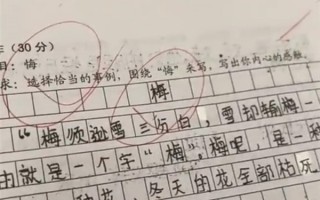 (30分)
目:悔
求:选择恰当的事例,围绕“悔”来写,写出你内心的感触。
梅
“梅须逊雪三分白,雪却输梅一
由就是一个字“梅”,梅呢,是一种
花,冬天的花全部枯死